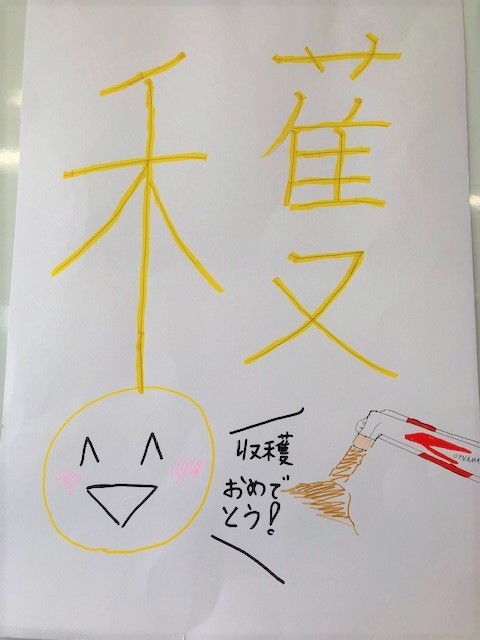 穫
収穫
おめで
とう!
DYNAMA